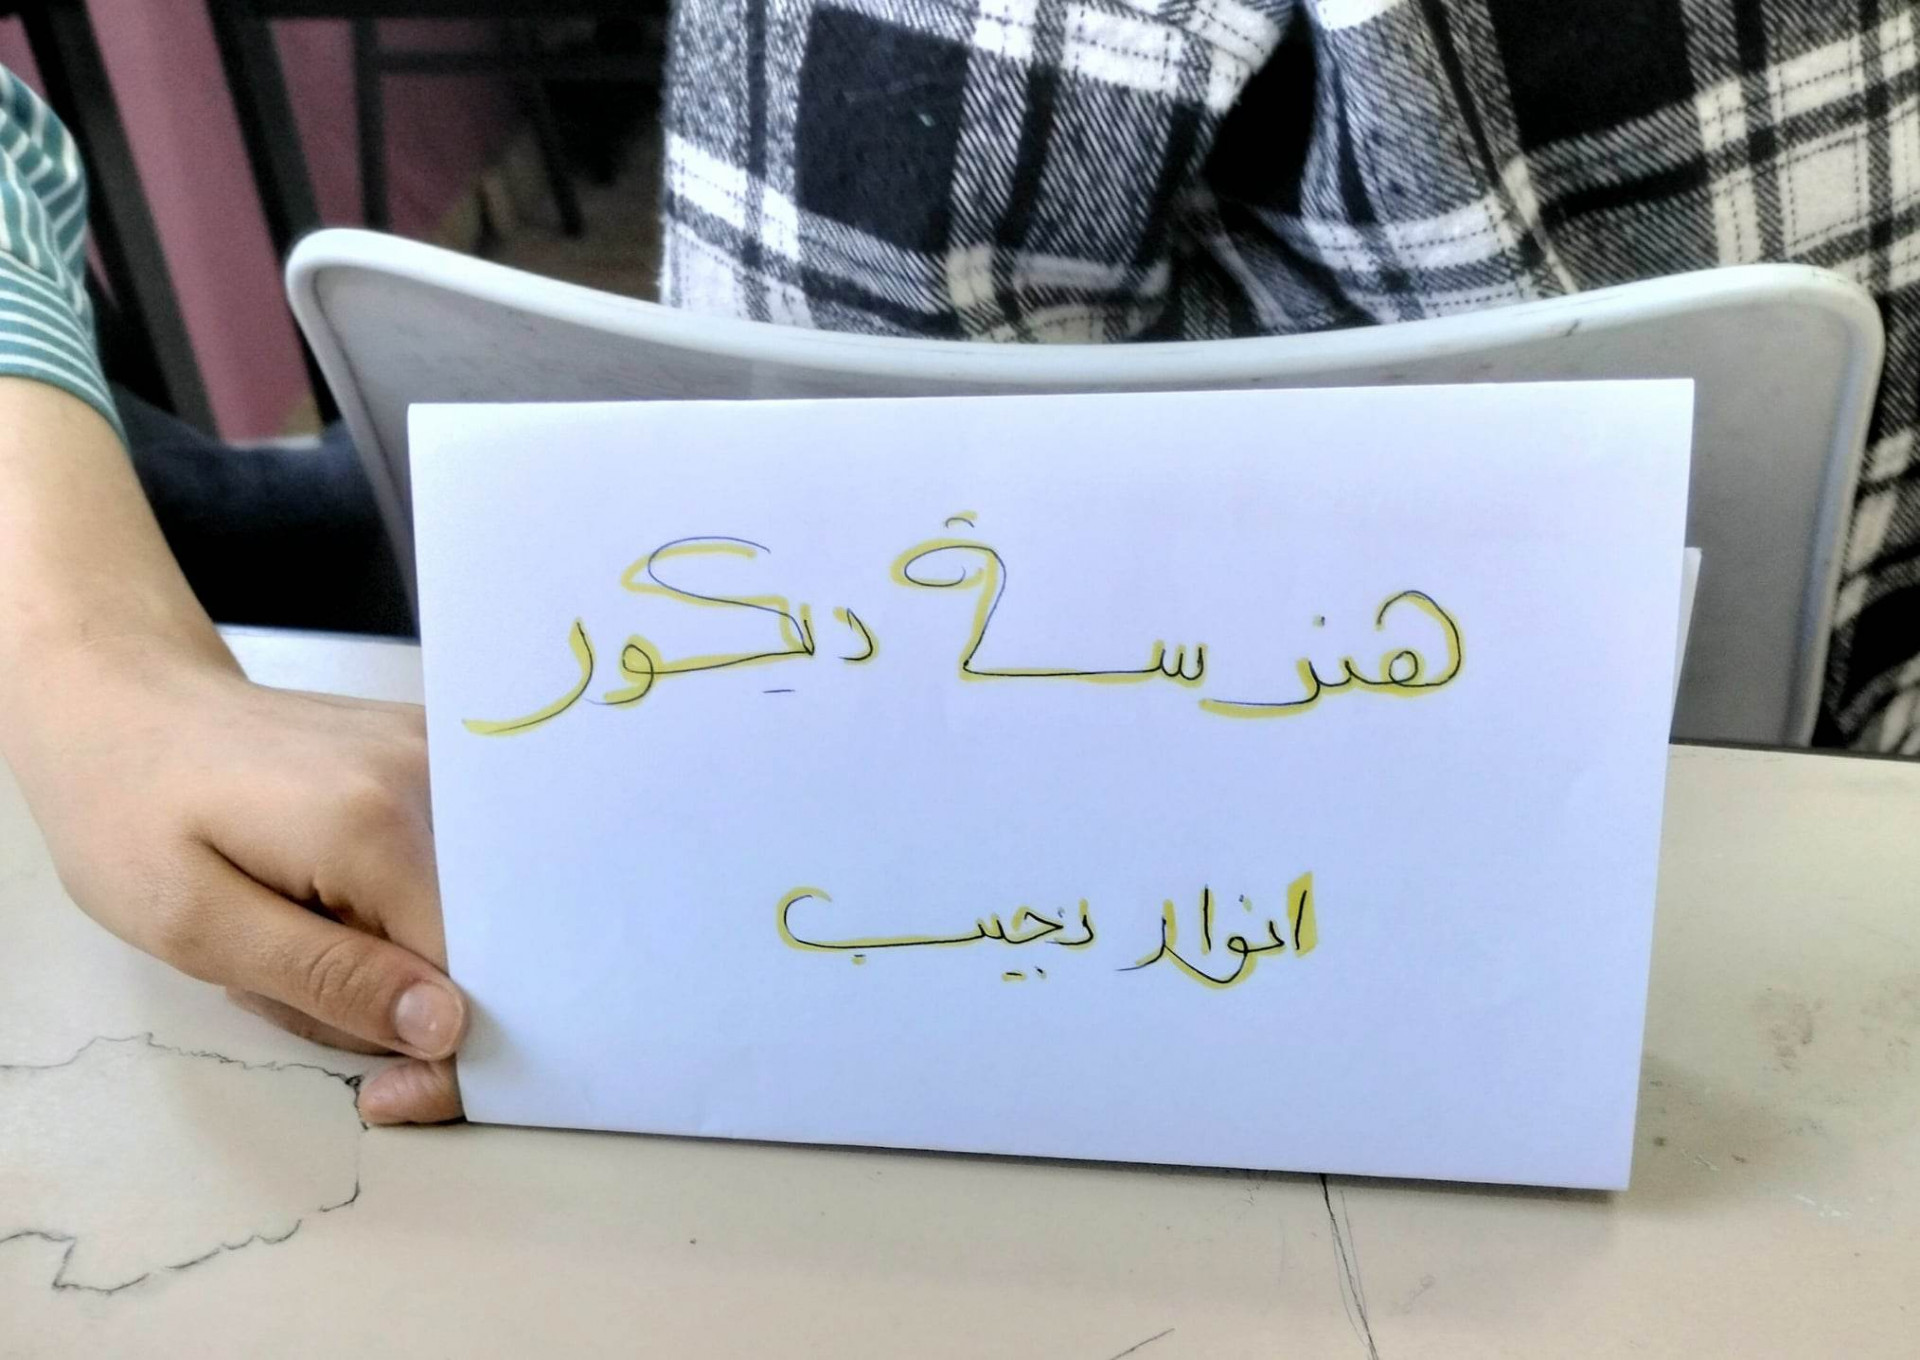 هندسة ديكور
انوار نجيب